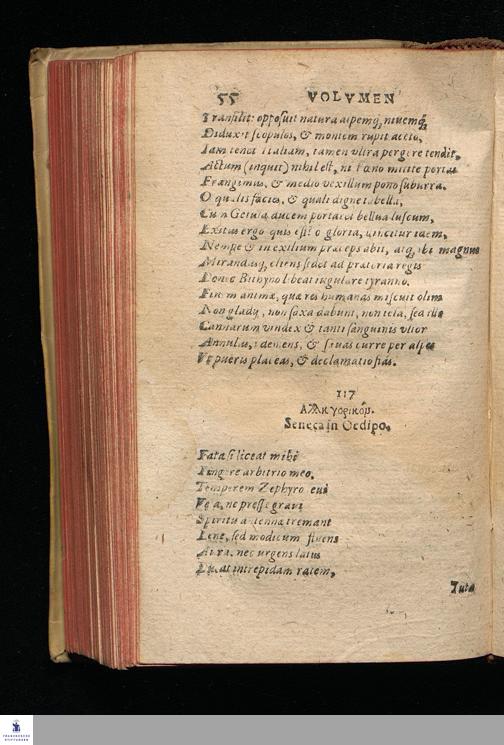 55 VOLVMEN
Transilit: opposuit natura alpemq́, niuemq́
Diduxit scopulos, & montem rupit aceto,
Iam tenet Italiam, tamen vltra pergere tendit,
Actum (inquit) nihil est, ni Pœno milite portas
Frangimus, & medio vexillum pono suburra.
O qualis facies, & quali digne tabella,
Cum Getula ducem portaret bellua luscum,
Exitus ergo quis est? o gloria, vincitur idem,
Nempe & in exilium præceps abit, atq, ibi magnus
Mirandusq, cliens sedet ad prætoria regis
Donec Bithyno libeat uigilare tyranno.
Finem animæ, quæ res humanas miscuit olim
Non gladij, non saxa dabunt, non tela, sed ille
Cannarum vindex & tanti sanguinis vltor
Annulus, i demens, & sæuas curre per alpes
Vt pueris placeas, & declamatio fias.
117
Αλληγορικόν.
Seneca in Oedipo.
Fata si liceat mihi
Fingere arbitrio meo,
Temperem Zephyro leui
Vela, ne pressæ graui
Spiritu antennæ tremant
Lene, sed modicum fluens
Aura, nec urgens latus
Ducat intrepidam ratem,
Tuta
FRANCKESCHE
STIFTUNGEN